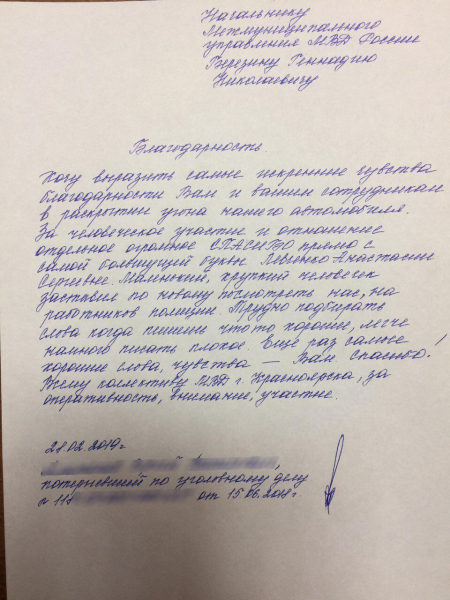 Начальнику
Межмуниципального
управления МВД России
Верезину Геннадию
Николаевичу
Благодарность.
Хочу выразить самые искренние чувства
благодарности Вам и вашим сотрудникам
в раскрытии угона нашего автомобиля.
За человеческое участие и отношение
отдельное огромное СПАСИБО прямо с
самой большущей буквы Левченко Анастасии
Сергеевне. Маленький, хрупкий человечек
заставил по новому посмотреть нас, на
работников полиции. Трудно подбирать
слова когда пишешь что то хорошее, легче
намного писать плохое. Еще раз самые
хорошие слова, чувства — Вам Спасибо!
Всему коллективу МВД г. Красноярска, за
оперативность, внимание, участие.
28.02.2019г
потерпевший по уголовному делу
№ 11 от 15.06.2018г